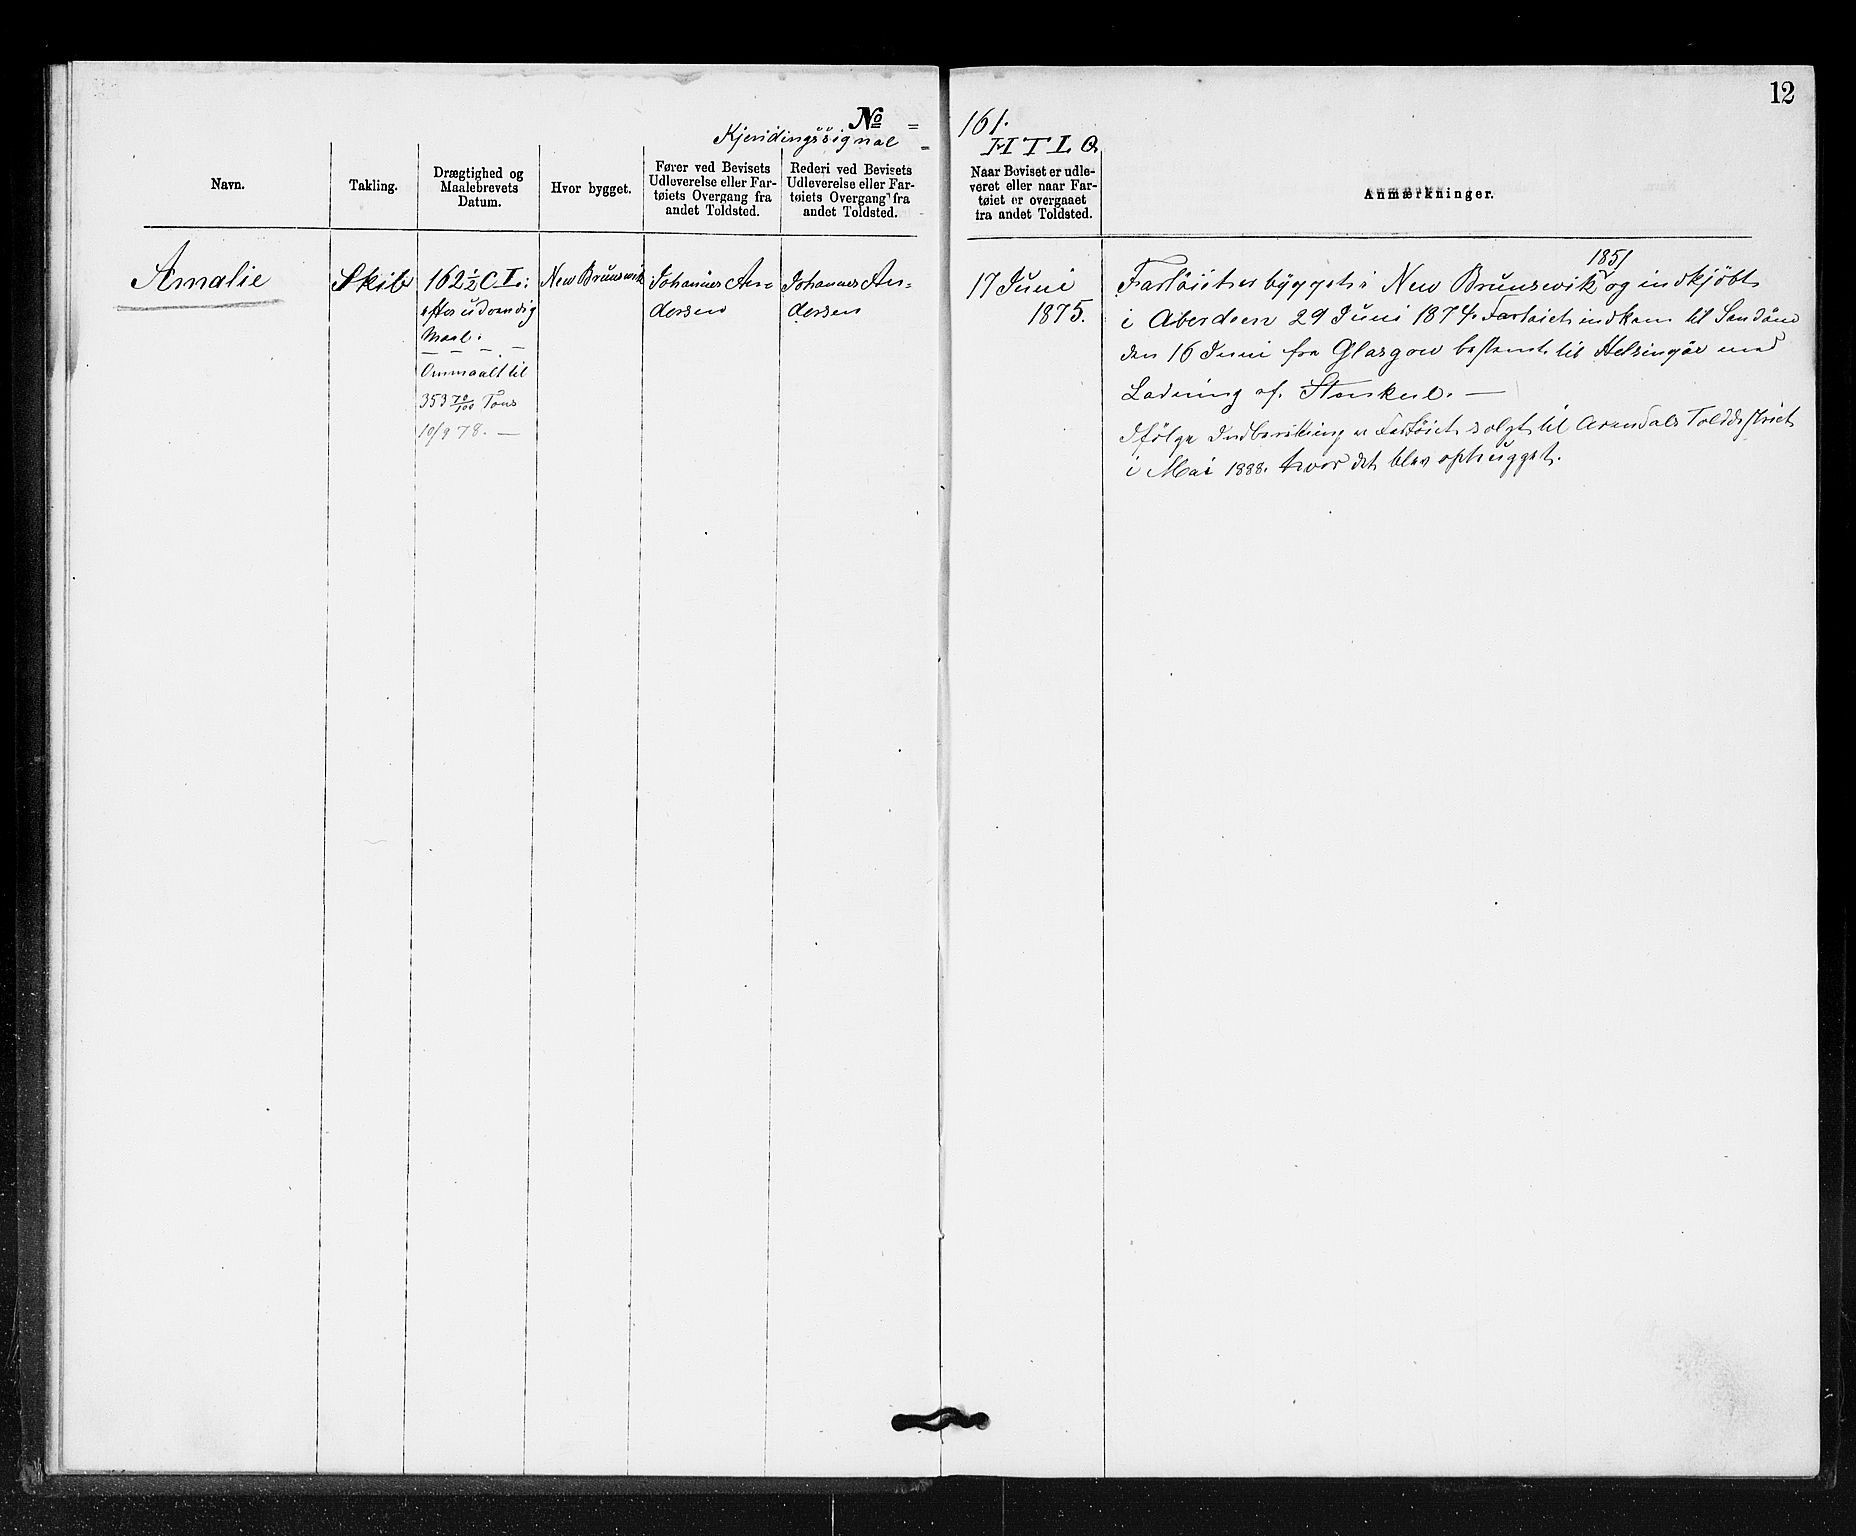 12
No = 161.
Kjendingssignal = HTLQ
Navn.
Takling.
Drægtighed og
Maalebrevets
Datum.
Hvor bygget.
Fører ved Bevisets
Udleverelse eller Far-
tøiets Overgang fra
andet Toldsted.
Rederi ved Bevisets
Udleverelse eller Far-
tøiets Overgang fra
andet Toldsted.
Naar Beviset er udle-
veret eller naar Far-
tøiet er overgaaet
fra andet Toldsted.
Anmærkninger.
Amalie
Skib
162½ C. L.:
efter udvendig
Maal.
Ommaalt til
353 70/100 Tons
10/9 78. —
New Brunswik
Johannes An-
dersen
Johannes An-
dersen
17 Juni
1875.
1851
Fartøiet er bygget i New Brunswik og indkjøbt
i Aberdeen 29 Juni 1874. Fartøiet indkom til
den 16 Juni fra Glasgow bestemt til Helsingør med
Ladning af Stenkul. —
Ifølge Indberetning er Fartøiet solgt til Arendals Tolddistrict
i Mai 1888. hvor det blev ophugget.